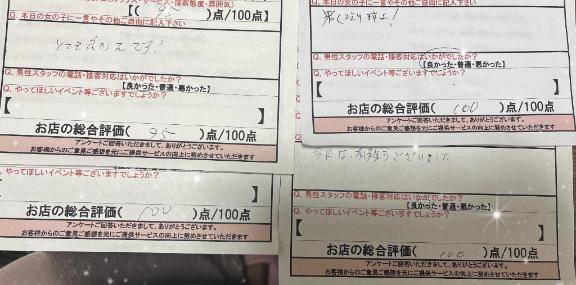 【( 95 )点/100点
Q. 本日の女の子に一言やその他ご自由に記入下さい
とても良かったです!
Q. 男性スタッフの電話・接客対応はいかがでしたか?
【良かった・普通・悪かった】
Q. やってほしいイベント等ございますでしょうか?
【 】
お店の総合評価( 95 )点/100点
アンケートご回答いただきまして、ありがとうございます。
お客様からのご意見ご感想を元にご提供サービスの向上に努めさせていただきます
やってほしいイベント等ございますでしょうか?
】
お店の総合評価( 100 )点/100点
アンケートご回答いただきまして、ありがとうございます。
お客様からのご意見ご感想を元にご提供サービスの向上に努めさせていただきます
本日の女の子に一言やその他ご自由に記入下さい
Q. 男性スタッフの電話・接客対応はいかがでしたか?
【良かった・普通・悪かった】
Q. やってほしいイベント等ございますでしょうか?
【 】
お店の総合評価( 100 )点/100点
アンケートご回答いただきまして、ありがとうございます。
お客様からのご意見ご感想を元にご提供サービスの向上に努めさせていただきます
ございました
Q. 男性スタッフの電話・接客対応はいかがでしたか?
【良かった・普通・悪かった】
Q. やってほしいイベント等ございますでしょうか?
【 】
お店の総合評価( 100 )点/100点
アンケートご回答いただきまして、ありがとうございます。
お客様からのご意見ご感想を元にご提供サービスの向上に努めさせていただきます